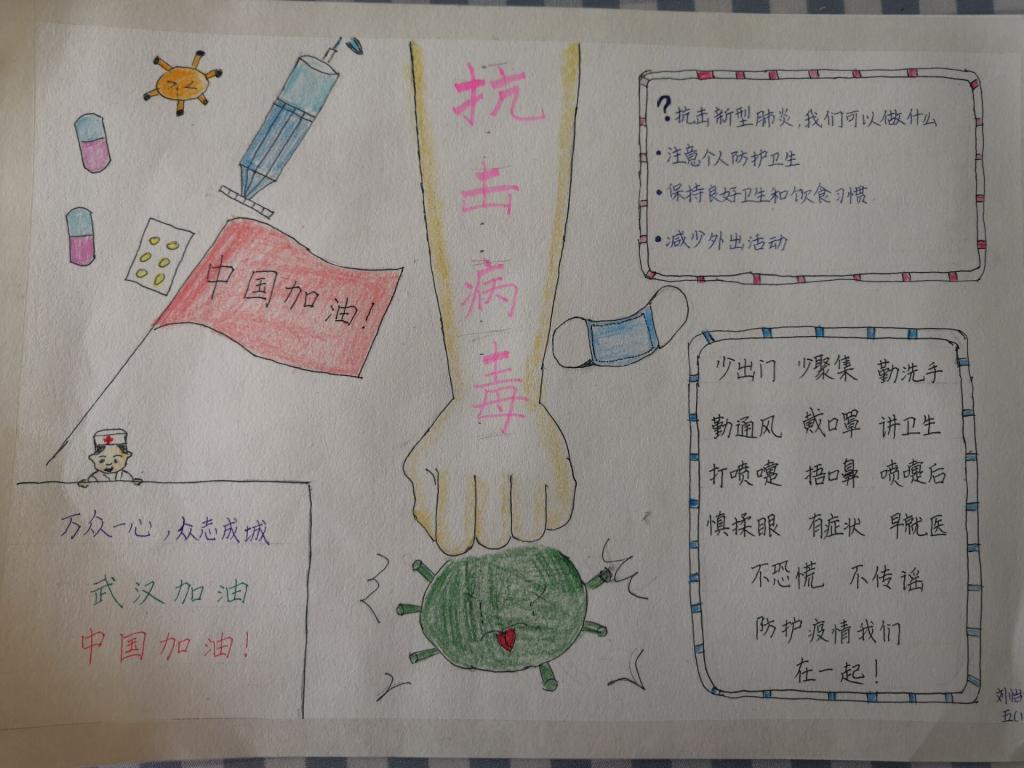 抗击病毒
?抗击新型肺炎,我们可以做什么
•注意个人防护卫生
•保持良好卫生和饮食习惯
•减少外出活动
中国加油!
少出门 少聚集 勤洗手
勤通风 戴口罩 讲卫生
打喷嚏 捂口鼻 喷嚏后
慎揉眼 有症状 早就医
不恐慌 不传谣
防护疫情我们
在一起!
万众一心,众志成城
武汉加油
中国加油!
刘怡
五(1